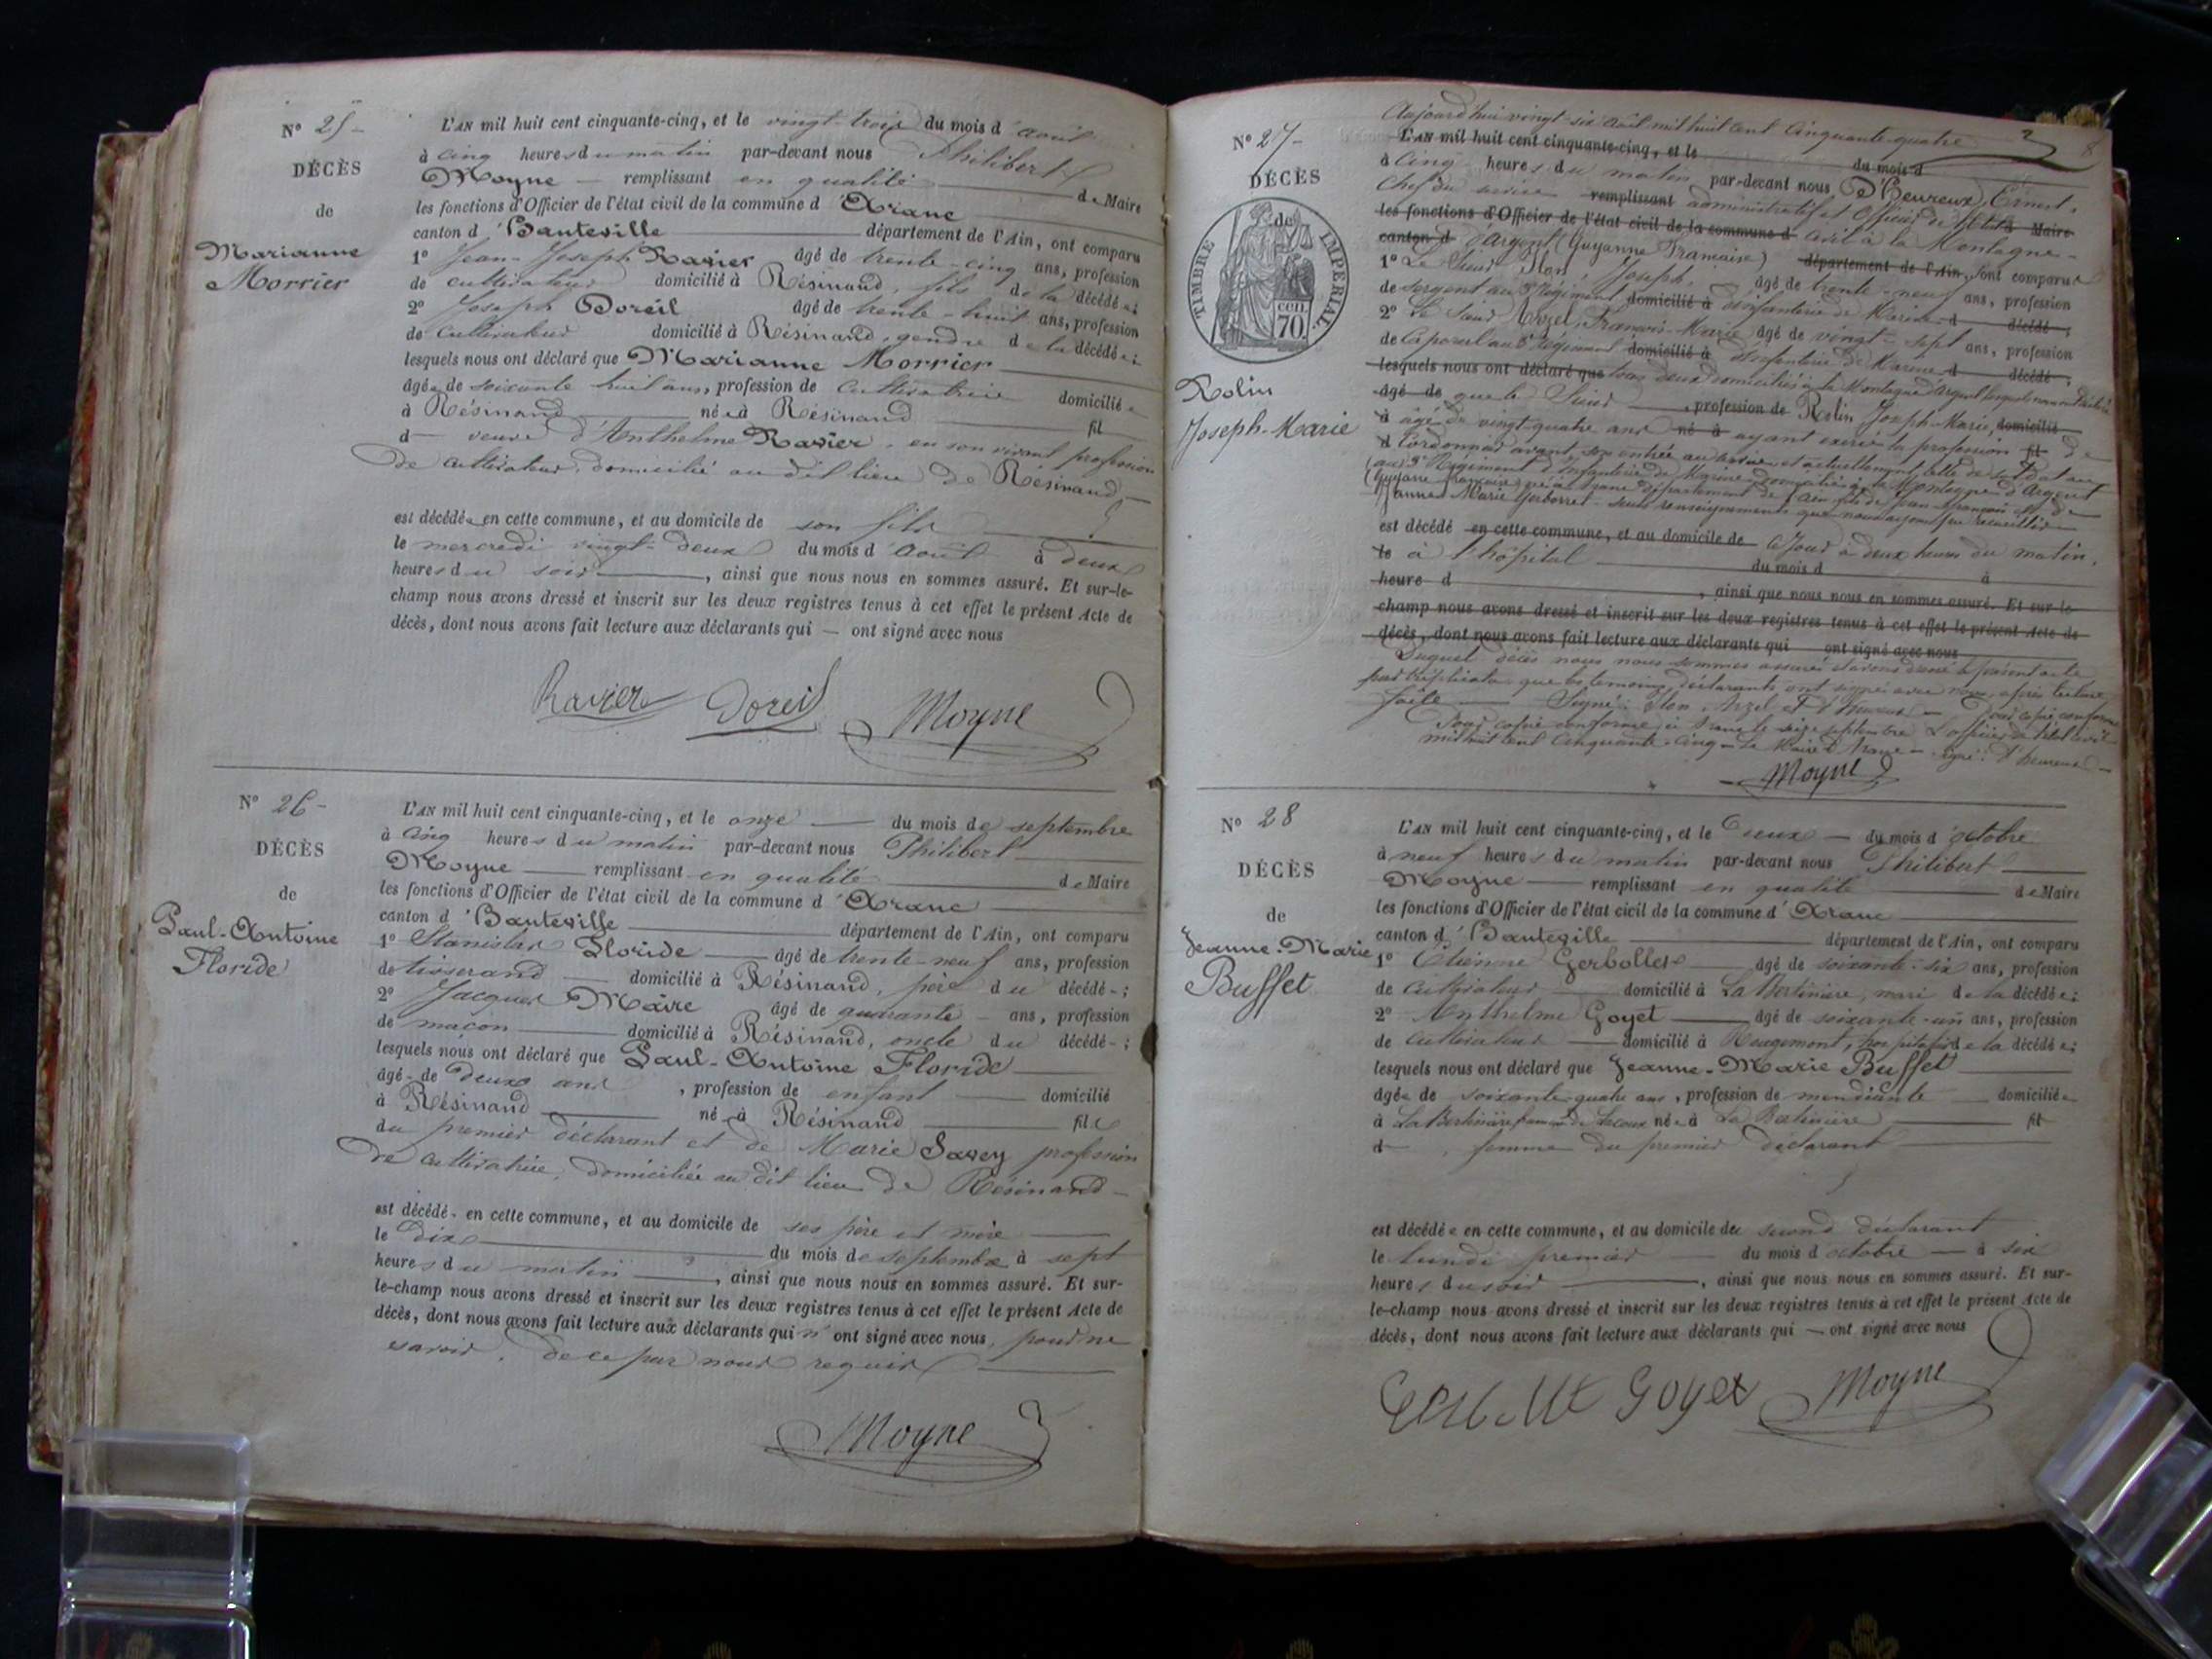 N° 25-
DÉCÈS
de
Marianne
Morrier
L'AN mil huit cent cinquante-cinq, et le vingt-trois du mois d'août
à cinq heures du matin par-devant nous Philibert
Moyne — remplissant en qualité de Maire
les fonctions d'Officier de l'état civil de la commune d'Aranc
canton d'Hauteville département de l'Ain, ont comparu
1° Jean-Joseph Ravier âgé de trente-cinq ans, profession
de cultivateur domicilié à Résinand, fils de la décédée;
2° Joseph Doreil âgé de trente-huit ans, profession
de cultivateur domicilié à Résinand, gendre de la décédée;
lesquels nous ont déclaré que Marianne Morrier
âgée de soixante huit ans, profession de cultivatrice domiciliée
à Résinand née à Résinand fil
d— veuve d'Anthelme Ravier, en son vivant profession
de cultivateur, domicilié au dit lieu de Résinand —
est décédée en cette commune, et au domicile de son fils
le mercredi vingt-deux du mois d'août à deux
heures du soir, ainsi que nous nous en sommes assuré. Et sur-le-
champ nous avons dressé et inscrit sur les deux registres tenus à cet effet le présent Acte de
décès, dont nous avons fait lecture aux déclarants qui — ont signé avec nous
Ravier Doreil Moyne
N° 26-
DÉCÈS
de
Paul-Antoine
Floride
L'AN mil huit cent cinquante-cinq, et le onze — du mois de septembre
à cinq heures du matin par-devant nous Philibert
Moyne — remplissant en qualité de Maire
les fonctions d'Officier de l'état civil de la commune d'Aranc
canton d'Hauteville département de l'Ain, ont comparu
1° Stanislas Floride — âgé de trente-neuf ans, profession
de tisserand — domicilié à Résinand, père du décédé-;
2° Jacques Maire âgé de quarante - ans, profession
de maçon domicilié à Résinand, oncle du décédé-;
lesquels nous ont déclaré que Paul-Antoine Floride
âgé- de deux ans, profession de enfant — domicilié
à Résinand né à Résinand fils
du premier déclarant et de Marie Savey profession
de cultivatrice, domiciliée au dit lieu de Résinand —
est décédé- en cette commune, et au domicile de ses père et mère
le dix du mois de septembre à sept
heures du matin, ainsi que nous nous en sommes assuré. Et sur-
le-champ nous avons dressé et inscrit sur les deux registres tenus à cet effet le présent Acte de
décès, dont nous avons fait lecture aux déclarants qui n'ont signé avec nous, pour ne
savoir, de ce par nous requis
Moyne
N° 27-
DÉCÈS
de
TIMBRE IMPERIAL
cen. 70
Rolin
Joseph-Marie
Aujourd'hui vingt-six août mil huit cent cinquante-quatre
L'AN mil huit cent cinquante-cinq, et le du mois d
à cinq heures du matin par-devant nous D'heureux, Ernest,
chef du service remplissant administratif et Officier de l'état de Maire
les fonctions d'Officier de l'état civil de la commune d civil à la Montagne-
canton d d'Argent (Guyanne Française) département de l'Ain, ont comparu
1° Le Sieur Joseph, âgé de trente-neuf ans, profession
de sergent au 3e Régiment domicilié à d'infanterie de Marine d décédé;
2° Le Sieur François-Marie âgé de vingt-sept ans, profession
de caporal au 3e Régiment domicilié à d'infanterie de Marine d décédé;
lesquels nous ont déclaré que tous deux domiciliés à la Montagne d'Argent lesquels nous ont déclaré
âgé de que le Sieur, profession de Rolin Joseph-Marie, domicilié
à âgé de vingt-quatre ans né à ayant exercé la profession fil de
d cordonnier avant son entrée au service et actuellement celle de soldat au
3e Régiment d'infanterie de Marine domicilié à la Montagne d'Argent
(Guyanne française) né à Aranc département de l'Ain fils de Jean François et de
Jeanne Marie Gerborret - seuls renseignements que nous ayons pu recueillir
est décédé en cette commune, et au domicile de ce jour à deux heures du matin,
le à l'hôpital du mois d à
heure d, ainsi que nous nous en sommes assuré. Et sur-le-
champ nous avons dressé et inscrit sur les deux registres tenus à cet effet le présent Acte de
décès, dont nous avons fait lecture aux déclarants qui ont signé avec nous
Duquel décès nous nous sommes assurés et avons dressé le présent acte
par triplicata que les témoins déclarants ont signé avec nous, après lecture
faite — Signé: et D'heureux — Pour copie conforme
L'officier de l'état civil
Signé: D'heureux —
Pour copie conforme, à Aranc le seize septembre
mil huit cent cinquante-cinq — Le Maire d'Aranc —
Moyne
N° 28
DÉCÈS
de
Jeanne-Marie
Buffet
L'AN mil huit cent cinquante-cinq, et le deux — du mois d'octobre
à neuf heures du matin par-devant nous Philibert
Moyne — remplissant en qualité de Maire
les fonctions d'Officier de l'état civil de la commune d'Aranc
canton d'Hauteville département de l'Ain, ont comparu
1° Etienne Gerbollet âgé de soixante-six ans, profession
de cultivateur domicilié à La Bertinière, mari de la décédée;
2° Anthelme Goyet âgé de soixante-un ans, profession
de cultivateur domicilié à Rougemont, de la décédée;
lesquels nous ont déclaré que Jeanne-Marie Buffet
âgée de soixante-quatre ans, profession de mendiante domiciliée
à La Bertinière née à La Bertinière fil
d—, femme du premier déclarant
est décédée en cette commune, et au domicile du second déclarant
le lundi premier du mois d'octobre — à six
heures du soir, ainsi que nous nous en sommes assuré. Et sur-
le-champ nous avons dressé et inscrit sur les deux registres tenus à cet effet le présent Acte de
décès, dont nous avons fait lecture aux déclarants qui — ont signé avec nous
Goyet Moyne